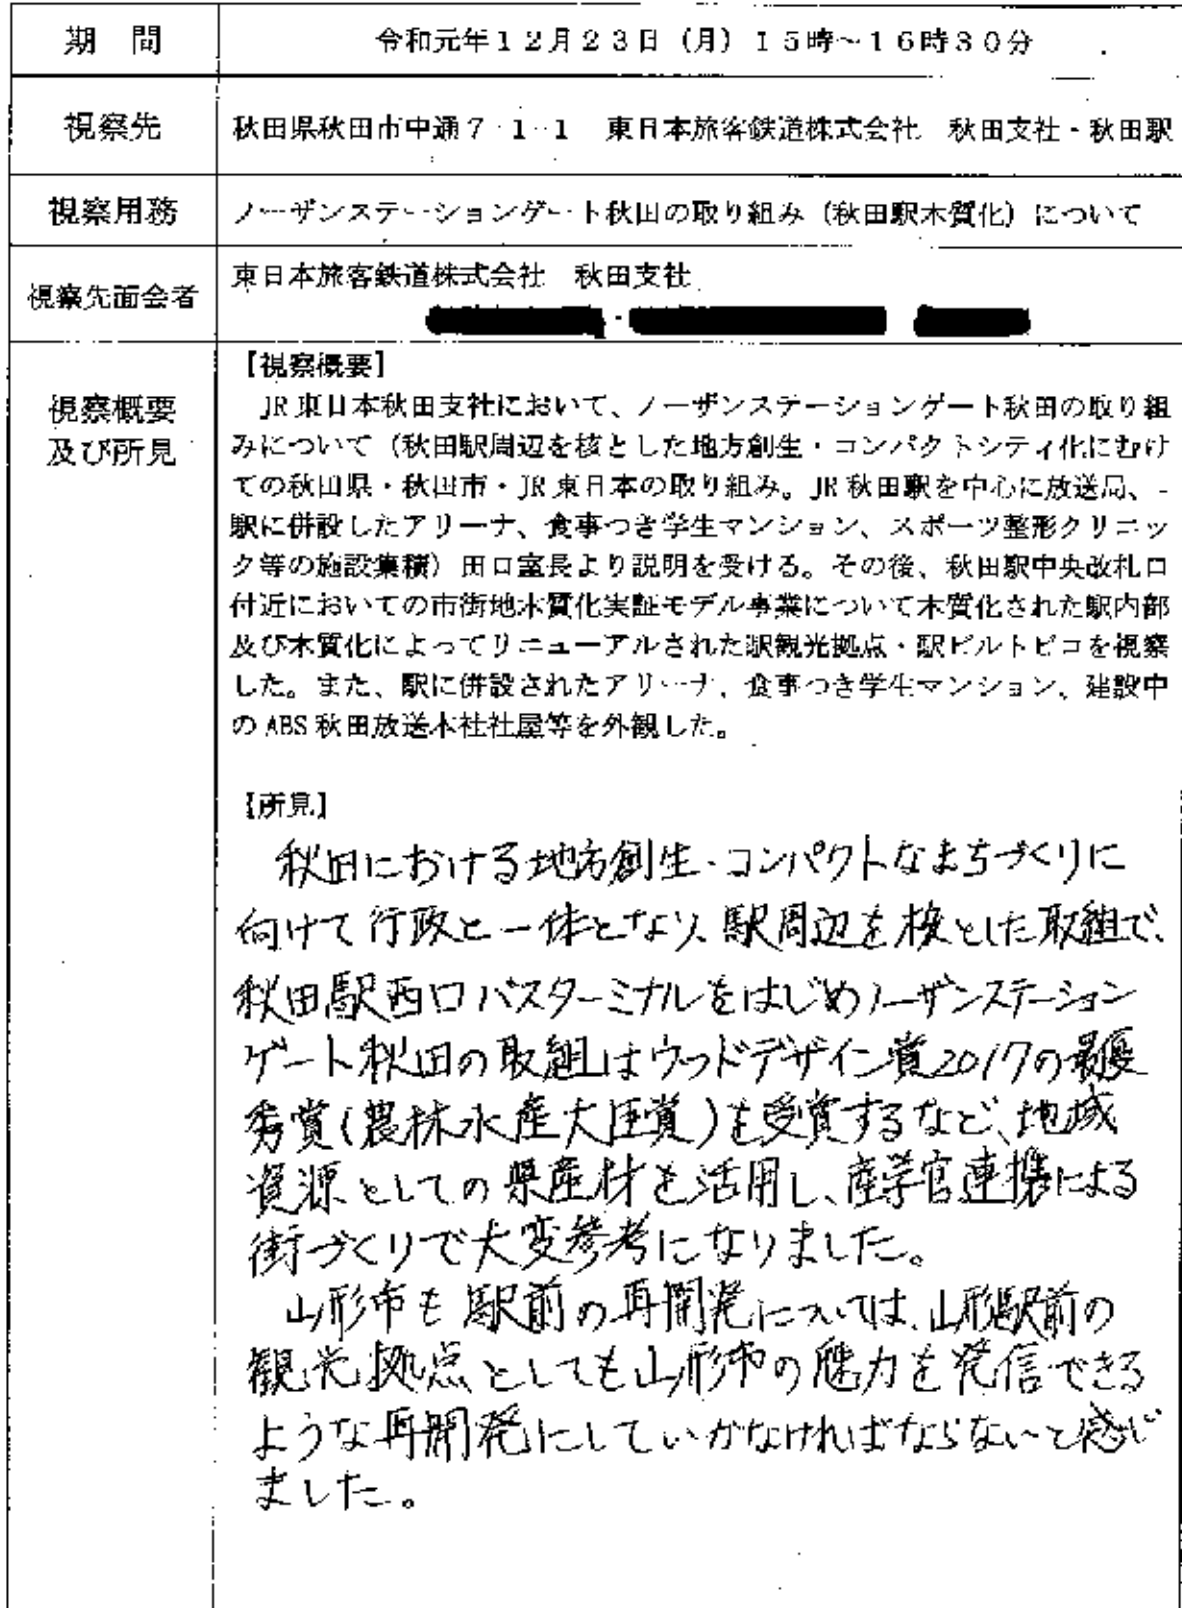 期 間 令和元年12月23日（月）15時～16時30分
視察先 秋田県秋田市中通7-1-1 東日本旅客鉄道株式会社 秋田支社・秋田駅
視察用務 ノーザンステーションゲート秋田の取り組み（秋田駅木質化）について
視察先面会者 東日本旅客鉄道株式会社 秋田支社
視察概要
及び所見
【視察概要】
JR東日本秋田支社において、ノーザンステーションゲート秋田の取り組
みについて（秋田駅周辺を核とした地方創生・コンパクトシティ化にむけ
ての秋田県・秋田市・JR東日本の取り組み。JR秋田駅を中心に放送局、
駅に併設したアリーナ、食事つき学生マンション、スポーツ整形クリニッ
ク等の施設集積）田口室長より説明を受ける。その後、秋田駅中央改札口
付近においての市街地木質化実証モデル事業について木質化された駅内部
及び木質化によってリニューアルされた駅観光拠点・駅ビルトピコを視察
した。また、駅に併設されたアリーナ、食事つき学生マンション、建設中
のABS秋田放送本社社屋等を外観した。
【所見】
秋田における地方創生・コンパクトなまちづくりに
向けて行政と一体となり、駅周辺を核とした取組で、
秋田駅西口バスターミナルをはじめノーザンステーション
ゲート秋田の取組はウッドデザイン賞2017の最優
秀賞(農林水産大臣賞)を受賞するなど、地域
資源としての県産材を活用し、産学官連携による
街づくりで大変参考になりました。
山形市も駅前の再開発については、山形駅前の
観光拠点としても山形市の魅力を発信できる
ような再開発にしていかなければならないと感じ
ました。